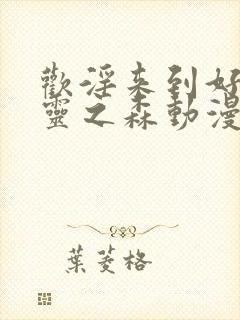 歡淫來到好
靈之森動漫
葉菱格